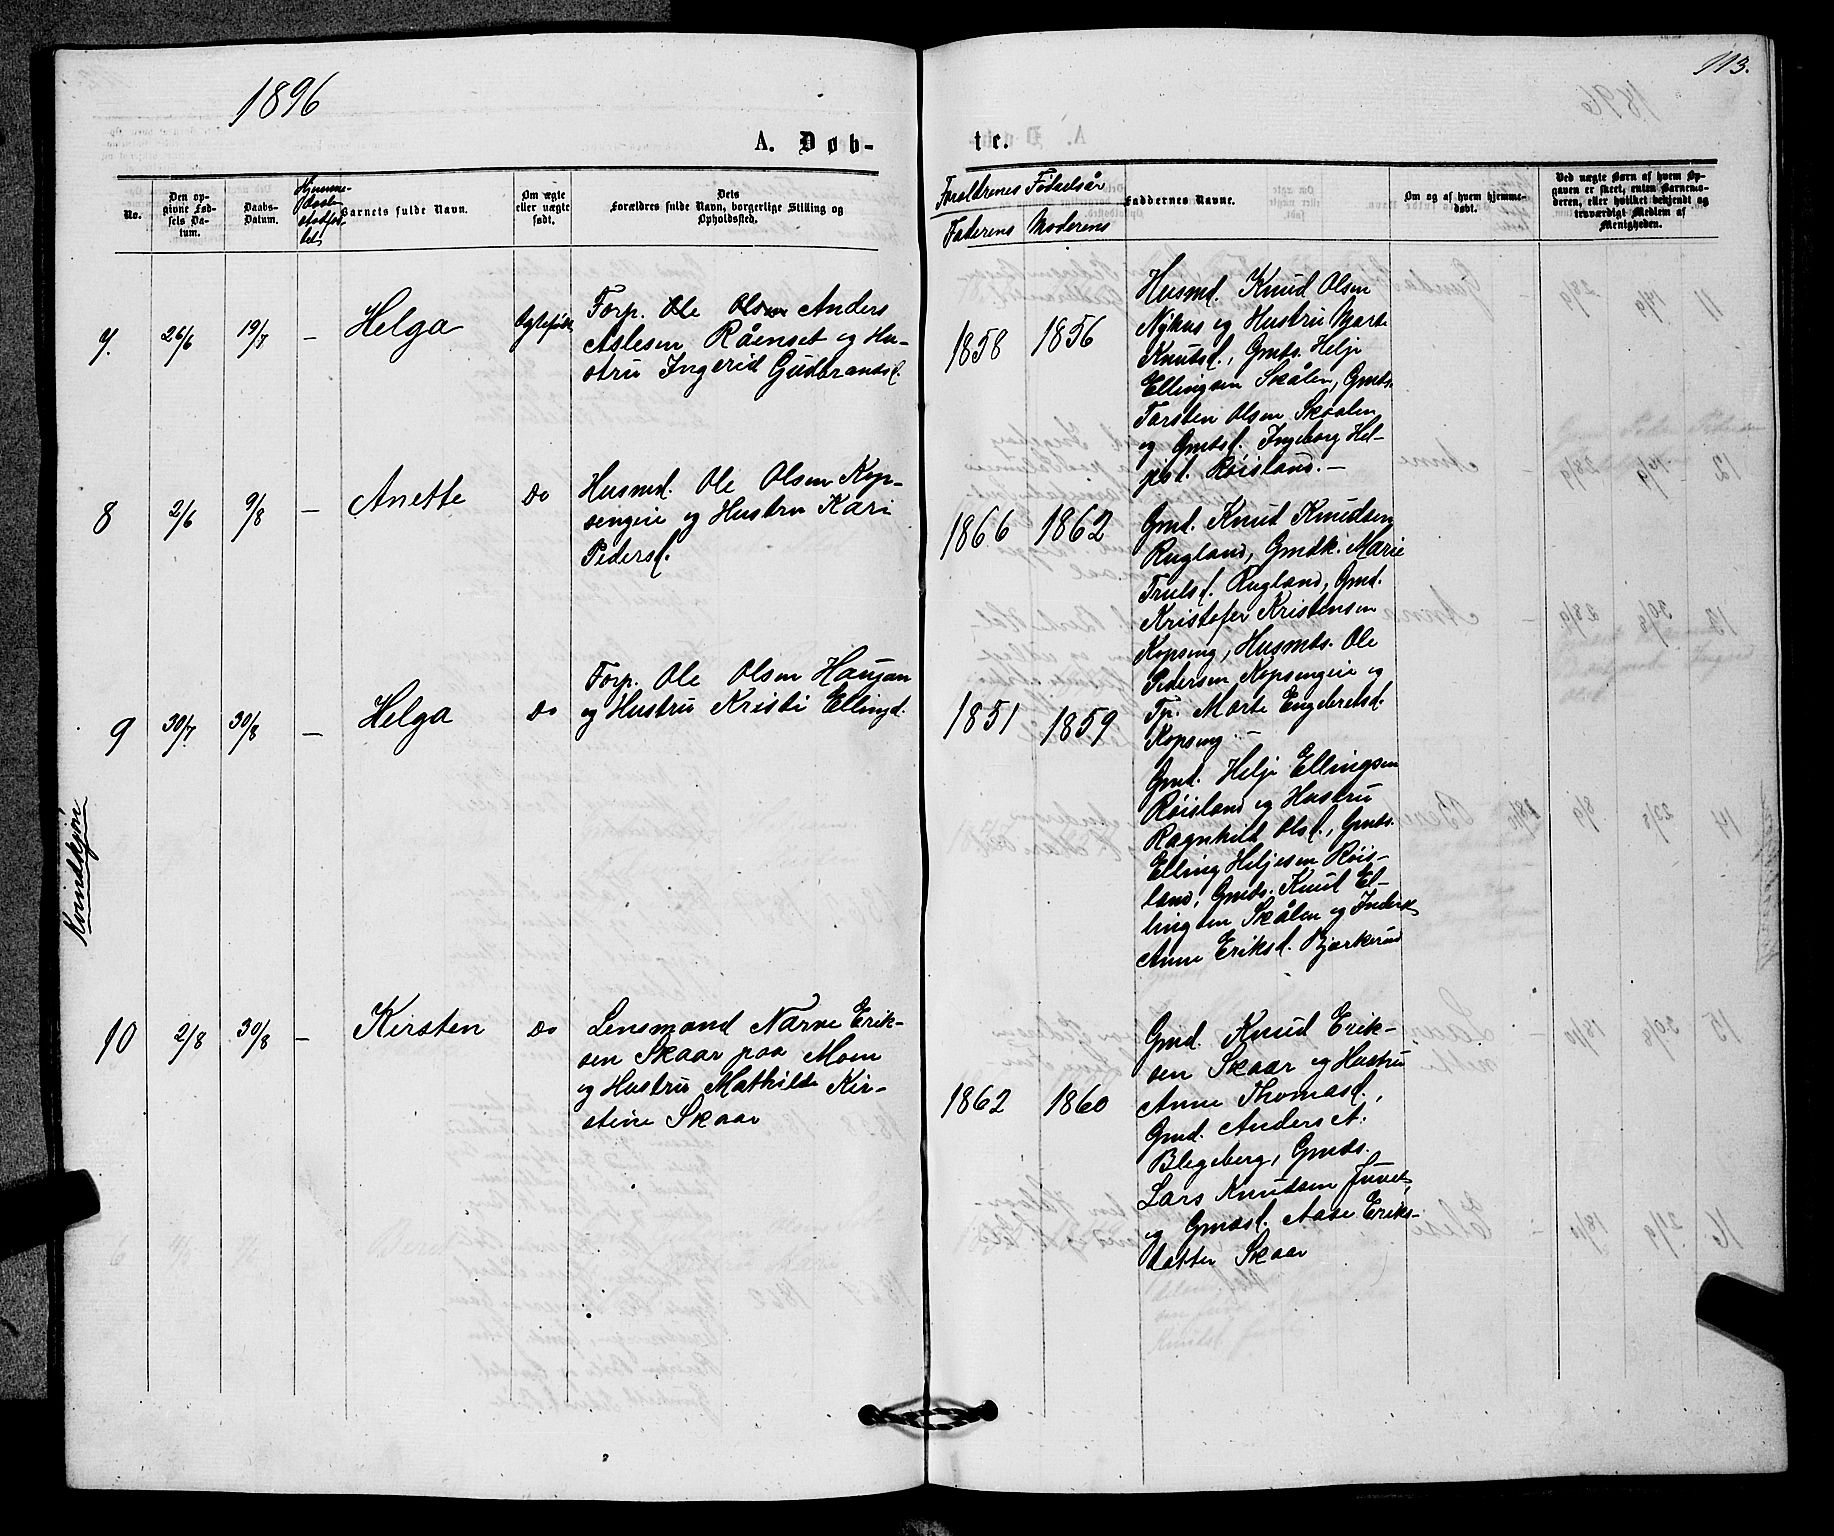 1896
113.
A. Døb-
te.
No.
Den op-
givne Fød-
sels Da-
tum.
Daabs-
Datum.
Hjemme-
daab
stadfæs-
tet
Barnets fulde Navn.
Om ægte
eller uægte
født.
Dets
Forældres fulde Navn, borgerlige Stilling og
Opholdssted.
Forældrenes Fødselsår
Faderens Moderens
Faddernes Navne.
Om og af hvem hjemme-
døbt.
Ved uægte Børn af hvem Op-
gaven er skeet, enten Barnemo-
deren, eller hvilket bekjendt og
troværdigt Medlem af
Menigheden.
Kvindekjøn
7. 26/6 19/7 — Helga Egtefødt
Forp. Ole Olsen Anders
Aslesen Råenset og Hu-
stru Ingerid Gudbrandsd.
1858 1856
Husmd. Knud Olsen
Nyhus og Hustru Marte
Knutsd., Gmds. Helje
Ellingsen Skålen, Gmds.
Torsten Olsen Skaalen
og Gmdsd. Ingeborg Hel-
jesd. Röisland. —
8 2/6 9/8 — Anette Do
Husmd. Ole Olsen Kop-
sengeie og Hustru Kari
Pedersd.
1866 1862
Gmd. Knut Knudsen
Rugland, Gmdk. Marie
Trulsd. Rugland, Gmd.
Kristofer Kristensen
Kopseng, Husmds. Ole
Pedersen Kopsengeie og
Tp. Marte Engebretsd.
Kopseng. —
9 30/7 30/8 — Helga Do
Forp. Ole Olsen Haujan
og Hustru Kristi Ellingd.
1851 1859
Gmd. Helje Ellingsen
Röisland og Hustru
Ragnhild Olsd., Gmds.
Elling Heljesen Röis-
land, Gmds. Knut El-
lingsen Skålen og Inderk
Anne Eriksd. Bjørkerud
10 2/8 30/8 — Kirsten Do
Lensmand Narve Erik-
sen Skaar paa Moen
og Hustru Mathilde Kir-
stine Skaar
1862 1860
Gmd. Knud Erik-
sen Skaar og Hustru
Anne Thomasd.,
Gmd. Anders A.
Blegeberg, Gmds.
Lars Knudsen Juvet,
og Gmdsd. Aase Eriks-
datter Skaar